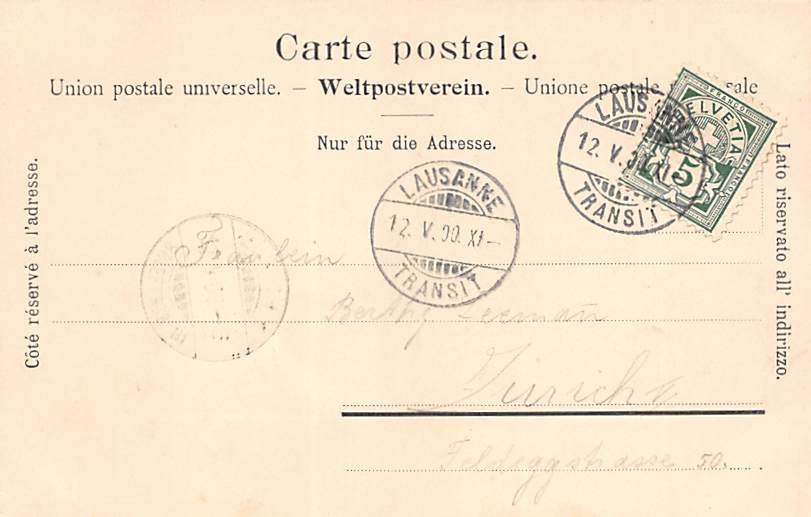 Carte postale.
Union postale universelle. – Weltpostverein. – Unione postale sale
Nur für die Adresse.
Côté réservé à l'adresse.
Lato riservato all' indirizzo.
LAUSANNE
12. V. 00. XI –
TRANSIT
LAUSANNE
12. V. 00. XI –
TRANSIT
FRANCO
HELVETIA
5
FRANCO
Fräulein
Berthy Leeman
Zürich
Feldeggstrasse 50.